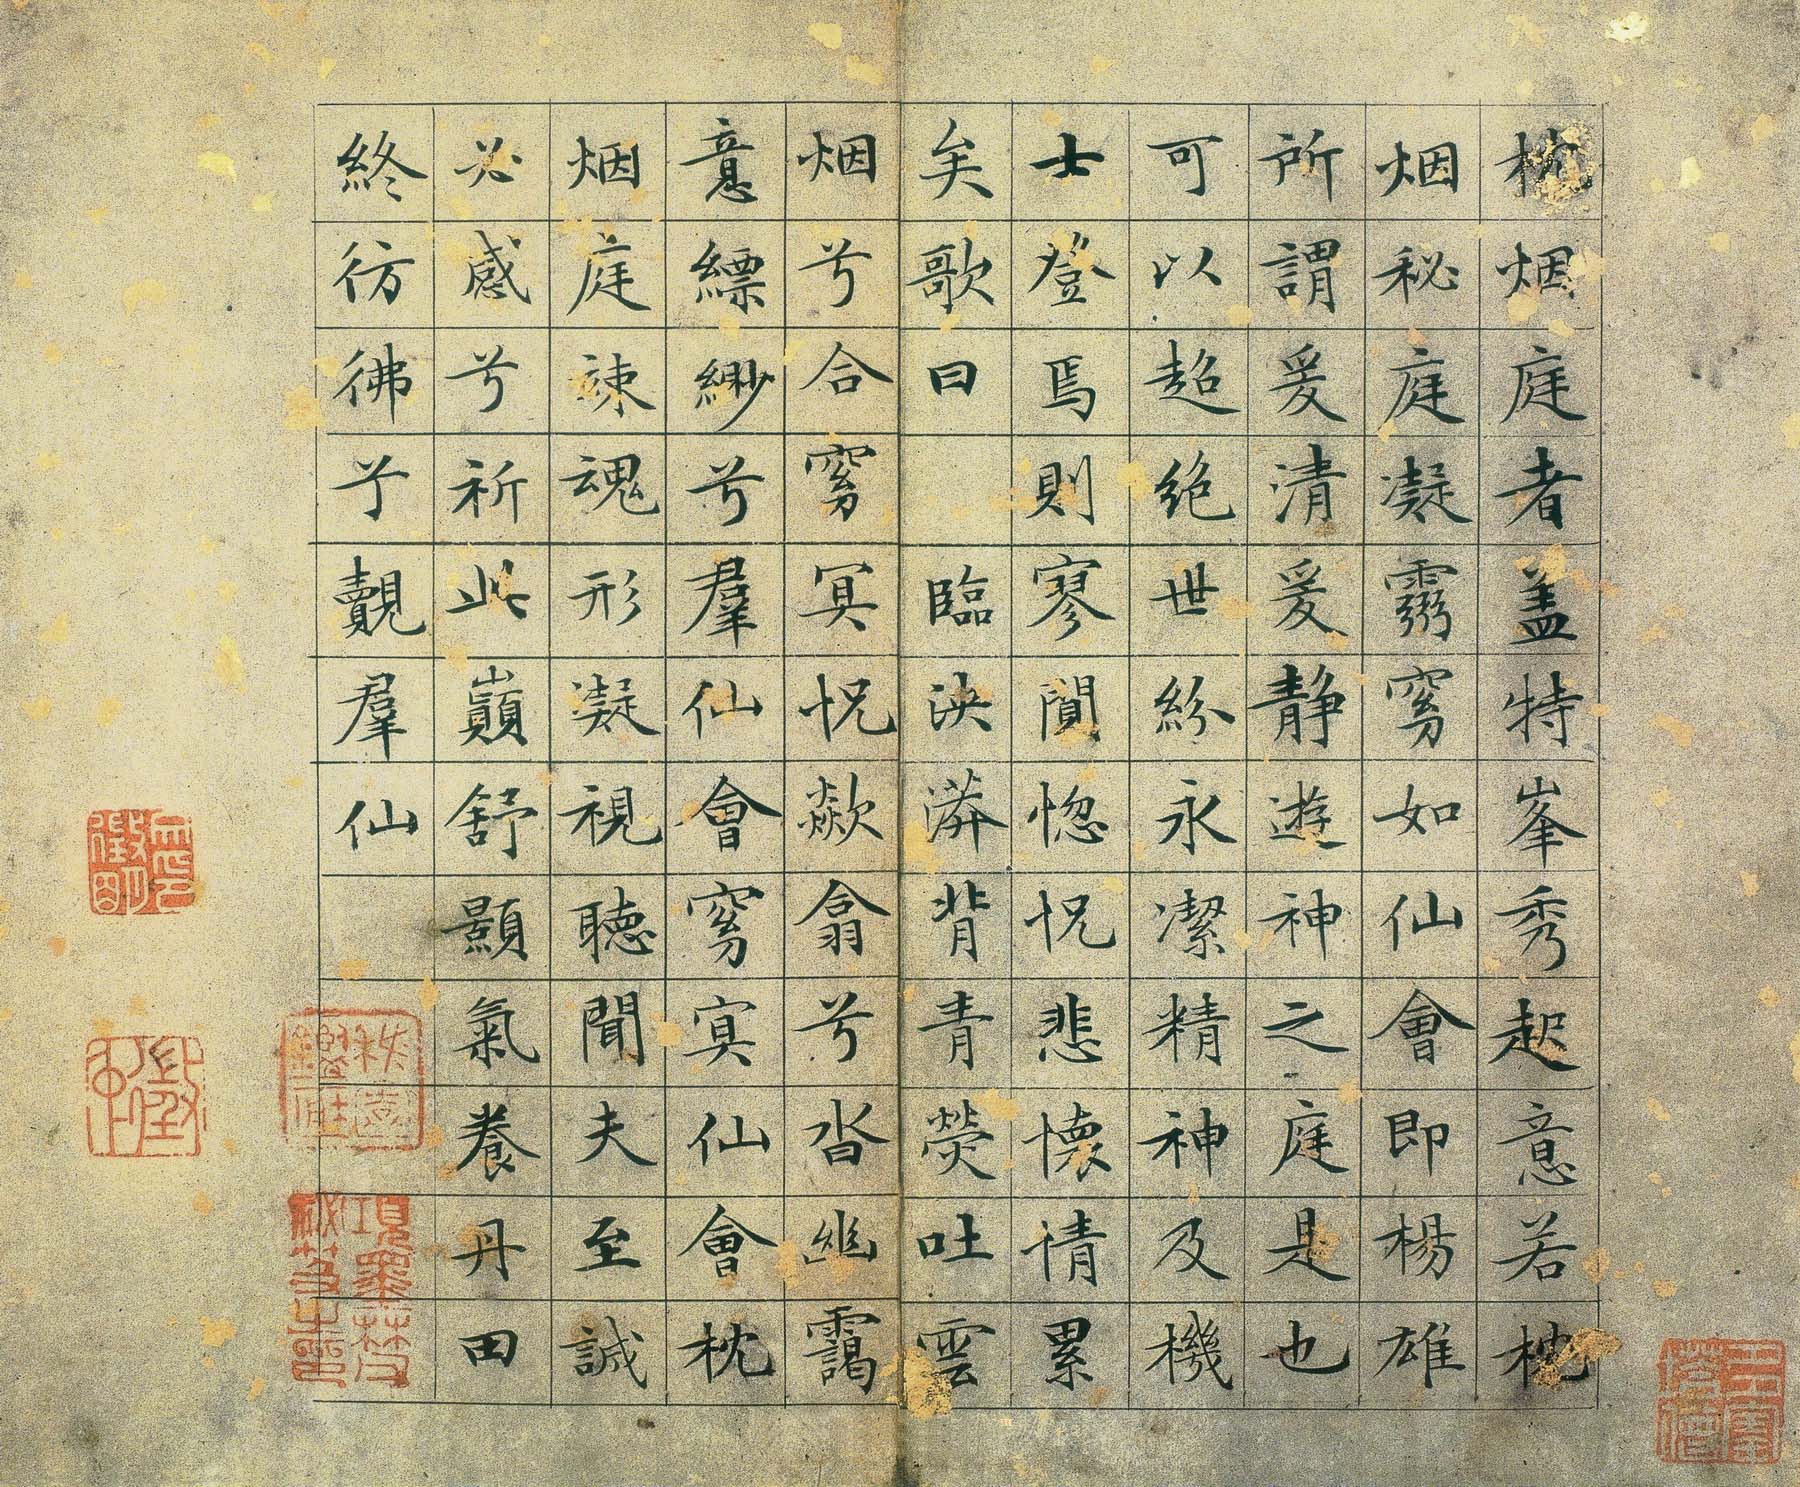 枕烟庭者盖特峯秀起意若枕
烟秘庭凝窈如仙會即楊雄
所謂爰清爰静遊神之庭是也
可以超絶世紛永潔精神及機
士登焉則寥閴惚怳悲懷情累
矣歌曰 臨泱漭背青熒吐雲
烟兮合窈冥怳歘翕兮沓幽靄
意縹緲兮羣仙會窈冥仙會枕
烟庭竦魂形凝視聽聞夫至誠
必感兮祈此巔舒顥氣養丹田
終彷彿兮覿羣仙
項墨林父祕笈之印